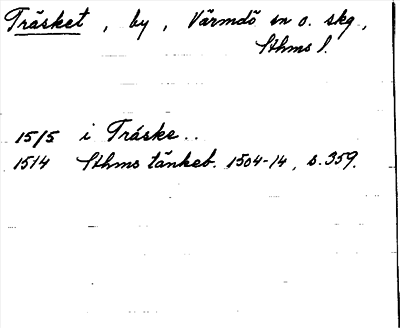 Träsket, by, Värmdö sn o. skg.,
Sthms l.
15/5 i Träske..
1514 Sthms tänkeb. 1504-14, s. 359.